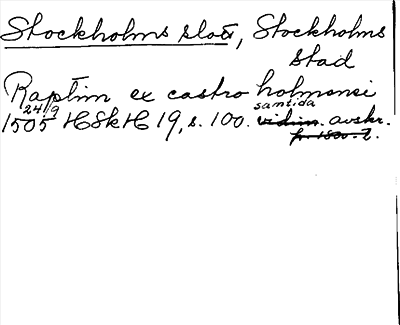 Stockholms slott, Stockholms
stad
Raptim ex castro holmensi
24/9 samtida
1505 HSkH 19, s. 100. vidim. avskr.
fr. 1500-t.